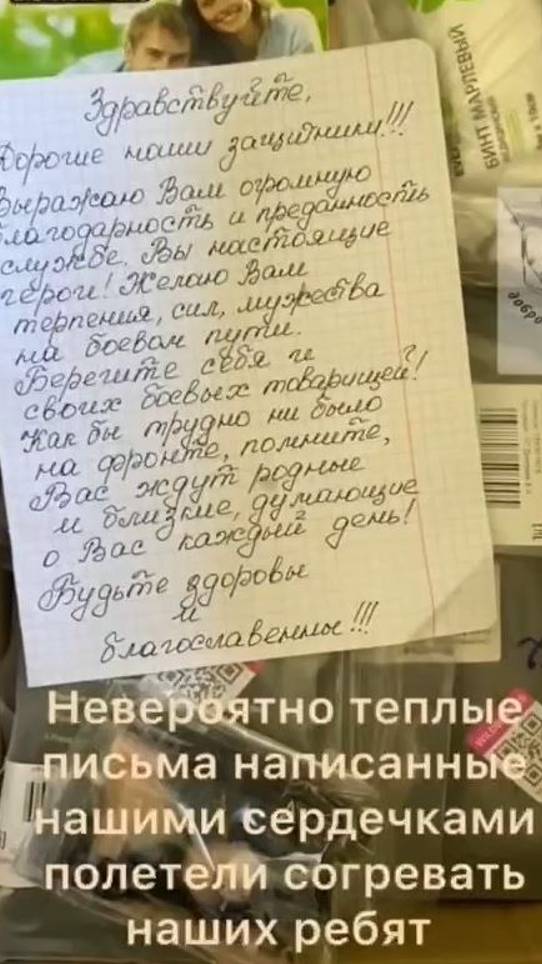 Здравствуйте,
Дорогие наши защитники!!!
Выражаю Вам огромную
благодарность и преданность
службе. Вы настоящие
герои! Желаю Вам
терпения, сил, мужества
на боевом пути.
Берегите себя и
своих боевых товарищей!
Как бы трудно ни было
на фронте, помните,
Вас ждут родные
и близкие, думающие
о Вас каждый день!
Будьте здоровы
и
благославенны!!!
БИНТ МАРЛЕВЫЙ
Невероятно теплые
письма написанные
нашими сердечками
полетели согревать
наших ребят